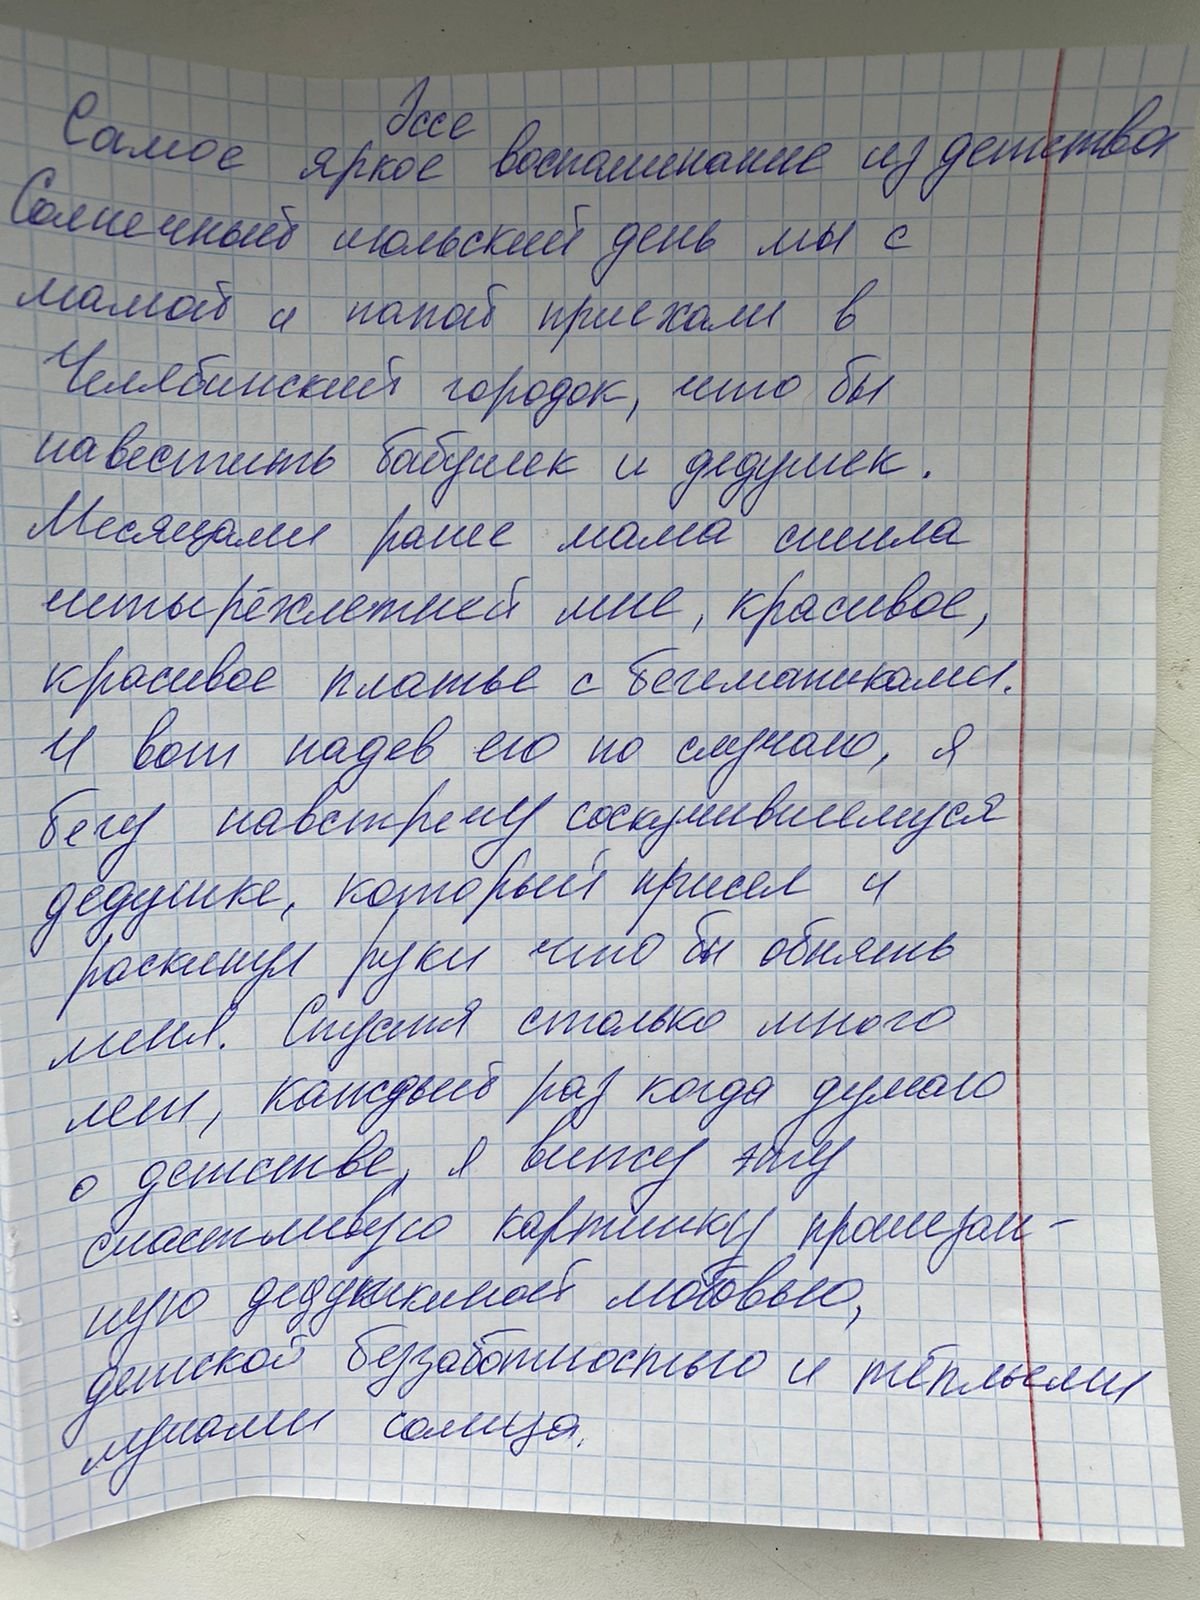 Эссе
Самое яркое воспоминание из детства
Солнечный июльский день мы с
мамой и папой приехали в
Челябинский городок, что бы
навестить бабушек и дедушек.
Месяцами ранее мама сшила
четырёхлетней мне, красивое,
красивое платье с бегемотиками.
И вот надев его по случаю, я
бегу навстречу соскучившемуся
дедушке, который присел и
раскинул руки что бы обнять
меня. Спустя столько много
лет, каждый раз когда думаю
о детстве, я вижу эту
счастливую картинку пронизан-
ную дедушкиной любовью,
детской беззаботностью и тёплыми
лучами солнца.